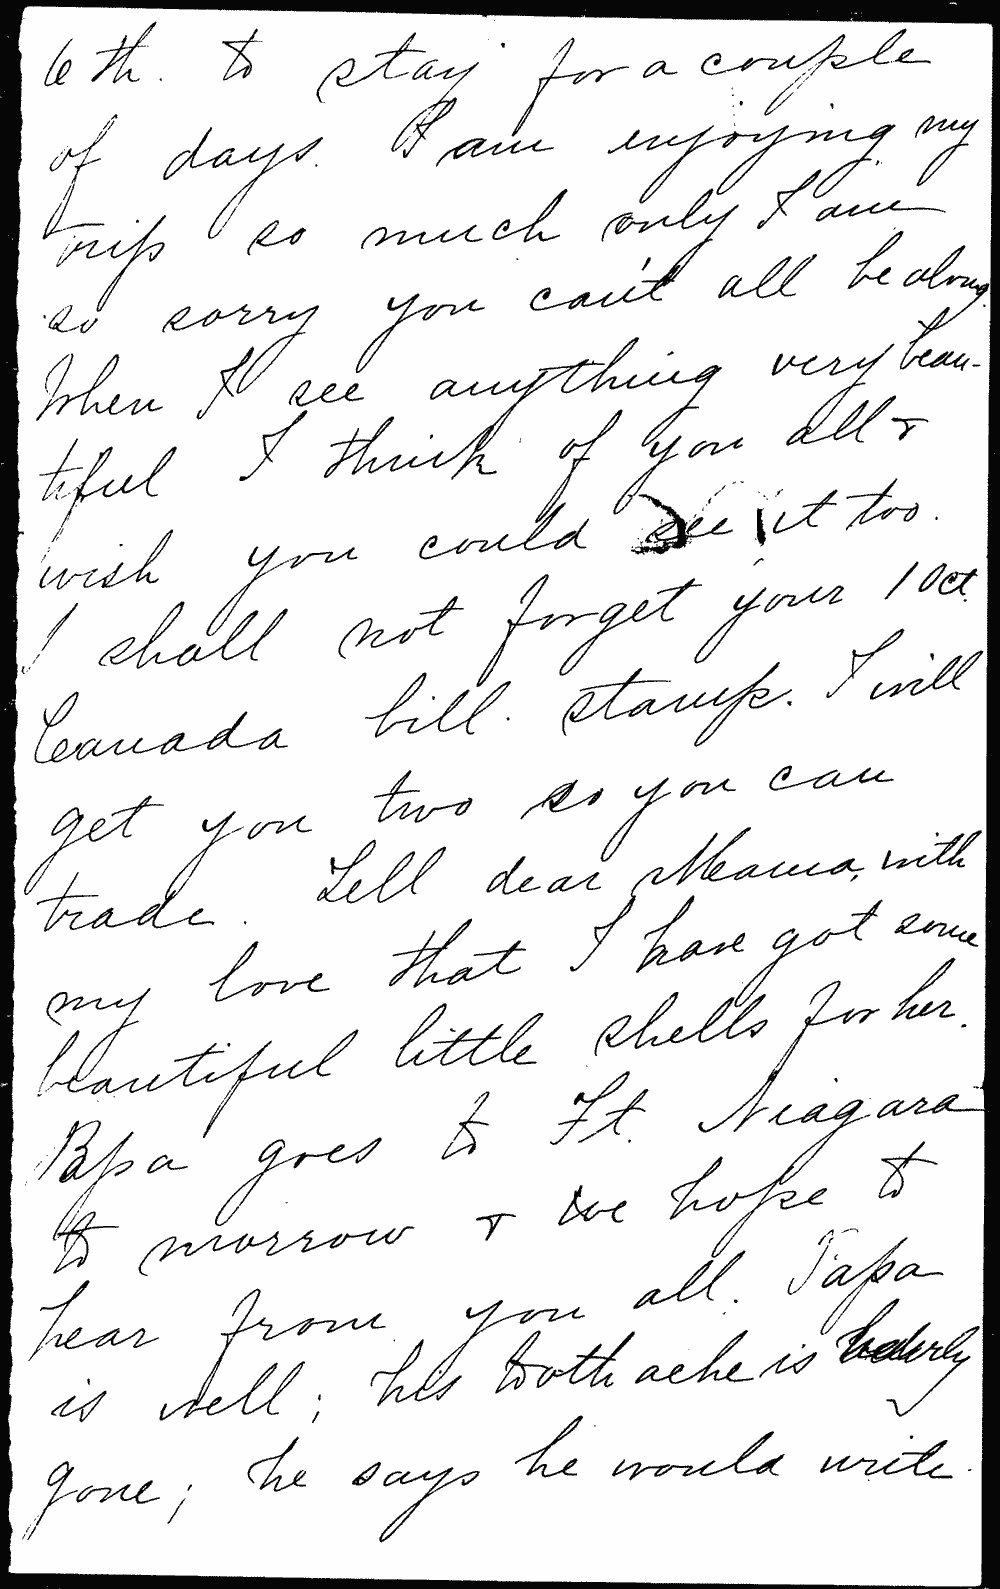 6th. to stay for a couple
of days. I am enjoying my
trip so much only I am
so sorry you can't all be along.
When I see anything very beau-
tiful I think of you all &
wish you could see it too.
I shall not forget your 1 Oct.
Canada bill stamp. I will
get you two so you can
trade. Tell dear Mama, with
my love that I have got some
beautiful little shells for her.
Papa goes to Ft. Niagara
to morrow & we hope to
hear from you all. Papa
is well; his toothache is
gone; he says he would write